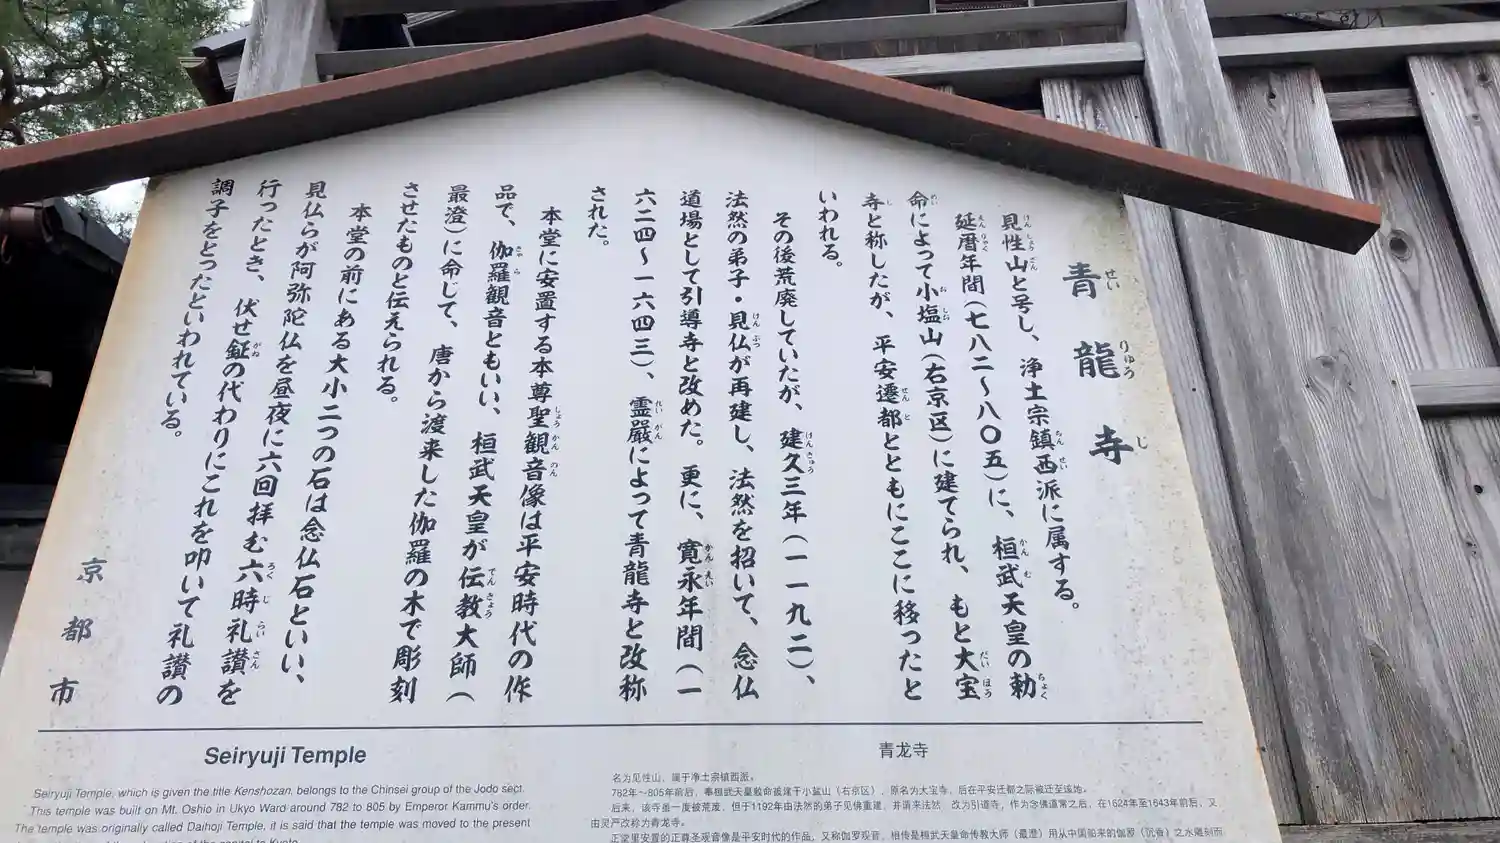 青龍寺
せいりゅうじ
見性山と号し、浄土宗鎮西派に属する。
延暦年間（七八二～八〇五）に、桓武天皇の勅
命によって小塩山（右京区）に建てられ、もと大宝
寺と称したが、平安遷都とともにここに移ったと
いわれる。
その後荒廃していたが、建久三年（一一九二）、
法然の弟子・見仏が再建し、法然を招いて、念仏
道場として引導寺と改めた。更に、寛永年間（一
六二四～一六四三）、霊巌によって青龍寺と改称
された。
本堂に安置する本尊聖観音像は平安時代の作
品で、伽羅観音ともいい、桓武天皇が伝教大師（
最澄）に命じて、唐から渡来した伽羅の木で彫刻
させたものと伝えられる。
本堂の前にある大小二つの石は念仏石といい、
見仏らが阿弥陀仏を昼夜に六回拝む六時礼讃を
行ったとき、伏せ鉦の代わりにこれを叩いて礼讃の
調子をとったといわれている。
京都市
Seiryuji Temple
Seiryuji Temple, which is given the title Kenshozan, belongs to the Chinsei group of the Jodo sect.
This temple was built on Mt. Oshio in Ukyo Ward around 782 to 805 by Emperor Kammu's order.
The temple was originally called Daihoji Temple, it is said that the temple was moved to the present
青龙寺
名为见性山，属于净土宗镇西派。
782年～805年前后，奉桓武天皇敕命被建于小盐山（右京区），原名为大宝寺，后在平安迁都之际被迁至该地。
后来，该寺虽一度被荒废，但于1192年由法然的弟子见佛重建，并请来法然 改为引道寺，作为念佛道常之后，在1624年至1643年前后，又
由灵严改称为青龙寺。
正堂里安置的正尊圣观音像是平安时代的作品，又称伽罗观音，相传是桓武天皇命传教大师（最澄）用从中国船来的伽罗（沉香）之木雕刻而